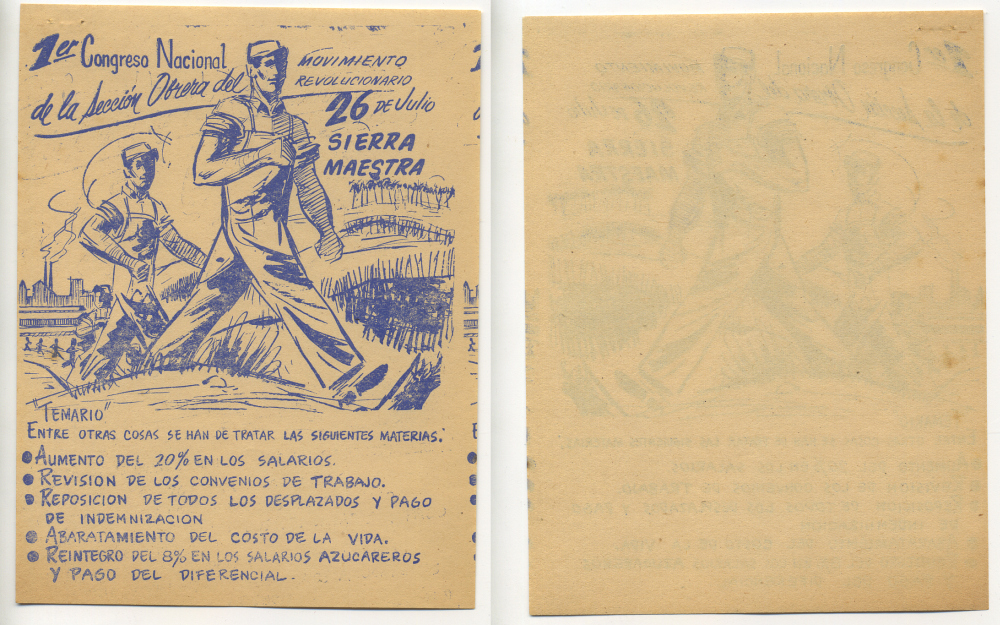 1er Congreso Nacional
de la Sección Obrera del
MOVIMIENTO
REVOLUCIONARIO
26 DE Julio
SIERRA
MAESTRA
"TEMARIO"
ENTRE OTRAS COSAS SE HAN DE TRATAR LAS SIGUIENTES MATERIAS:
● AUMENTO DEL 20% EN LOS SALARIOS.
● REVISION DE LOS CONVENIOS DE TRABAJO.
● REPOSICION DE TODOS LOS DESPLAZADOS Y PAGO
DE INDEMNIZACION
● ABARATAMIENTO DEL COSTO DE LA VIDA.
● REINTEGRO DEL 8% EN LOS SALARIOS AZUCAREROS
Y PAGO DEL DIFERENCIAL.